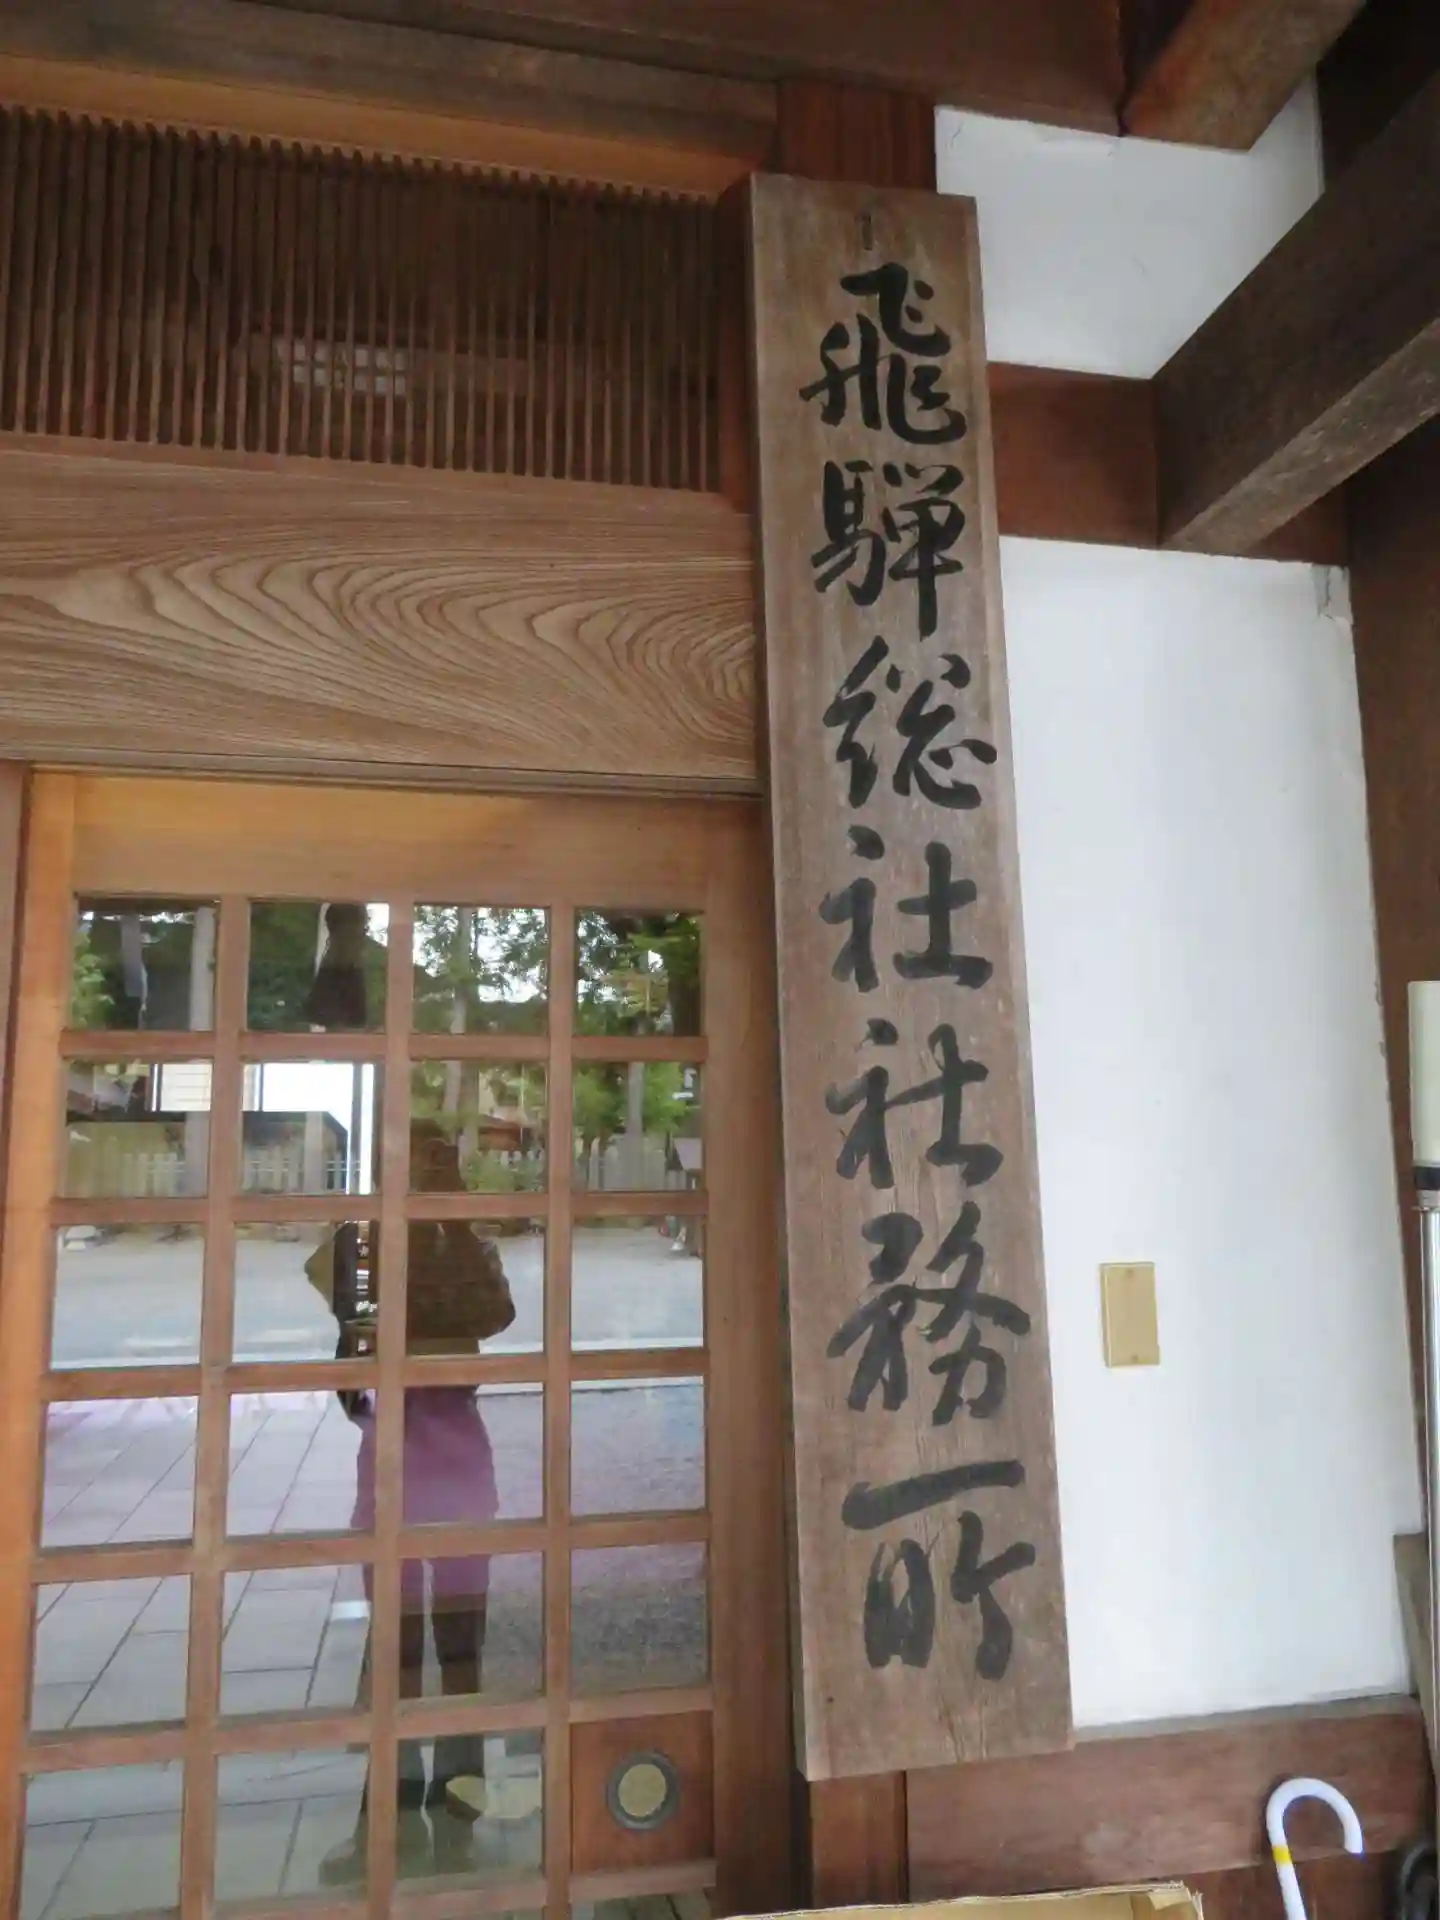 飛騨総社社務所